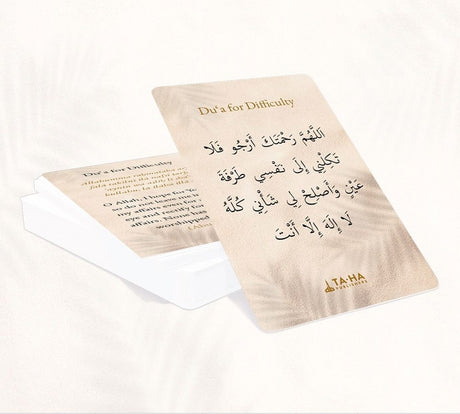 Du'a for Difficulty
اَللَّهُمَّ رَحْمَتَكَ أَرْجُو فَلَا
تَكِلْنِي إِلَى نَفْسِي طَرْفَةَ
عَيْنٍ وَأَصْلِحْ لِي شَأْنِي كُلَّهُ
لَا إِلَهَ إِلَّا أَنْتَ
TA-HA
PUBLISHERS
Du'a for Difficulty
O Allah, I hope for You
so do not leave me
my affair, even for
eye and rectify for
affairs. None has
worshipped